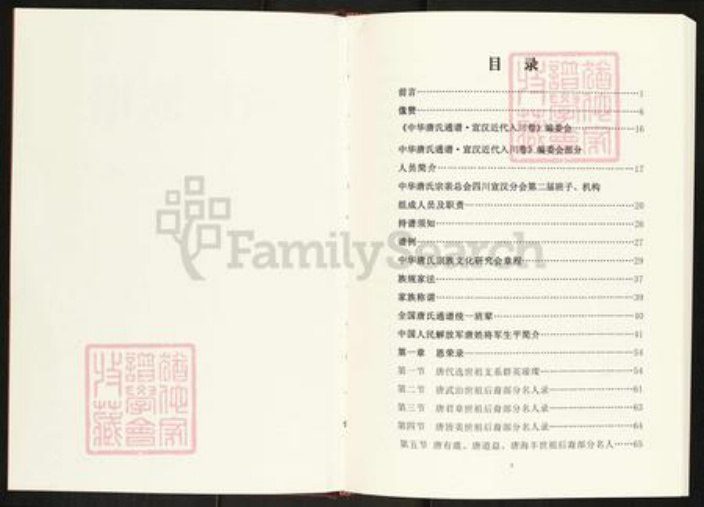 目 录
前言……1
像赞……8
《中华唐氏通谱·宣汉近代入川卷》编委会……16
中华唐氏通谱·宣汉近代入川卷》编委会部分
人员简介……17
中华唐氏宗亲总会四川宣汉分会第二届班子、机构
组成人员及职责……20
持谱须知……26
谱例……27
中华唐氏宗族文化研究会章程……29
族规家法……37
家族称谓……39
全国唐氏通谱统一班辈……40
中国人民解放军唐姓将军生平简介……41
第一章 恩荣录……54
第一节 唐代选世祖支系群英璀璨……54
第二节 唐武治世祖后裔部分名人录……61
第三节 唐君章世祖后裔部分名人录……63
第四节 世祖后裔部分名人录……64
第五节 唐有 、唐道益、唐海丰世祖后裔部分名人……65
FamilySearch
譜學會
收藏
譜學會
收藏